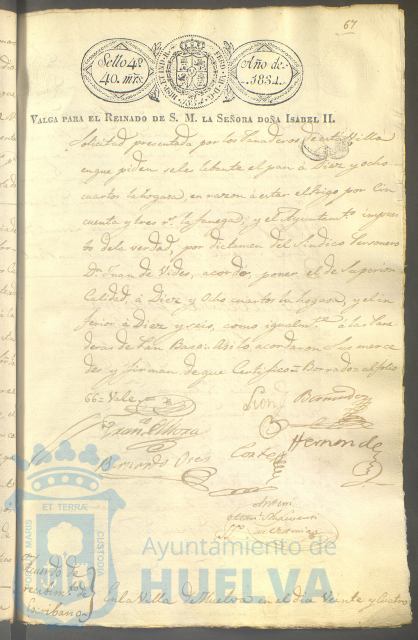 67
Sello 4º
40. mrs
Año de
1834.
VALGA PARA EL REINADO DE S. M. LA SEÑORA DOÑA ISABEL II.
Solicitud presentada por los Panaderos de esta Villa
en que piden se les lebante el pan á Diez y ocho
cuartos la hogasa, en razon á estar el trigo por Cin
cuenta y tres rs. la fanega; y el Ayuntamto
de la verdad, por dictamen del Sindico Personero
Dn. Juan de Vides, acordó, poner el de Superior
Calidad, á Diez y Ocho cuartos la hogasa, y el in
ferior á Diez y seis, como igualmte. á las Pana
deras de Pan Baso. Asi lo acordaron Sus merce
des y firman, de que Certifico= Borrador al folio
66= Vale
Bermudez
Hernande
Cortes
Ante mi
ET TERRÆ
CUSTODIA
PORTUS MARIS
Ayuntamiento de
HUELVA
En la Villa de Huelva en el dia Veinte y Cuatro